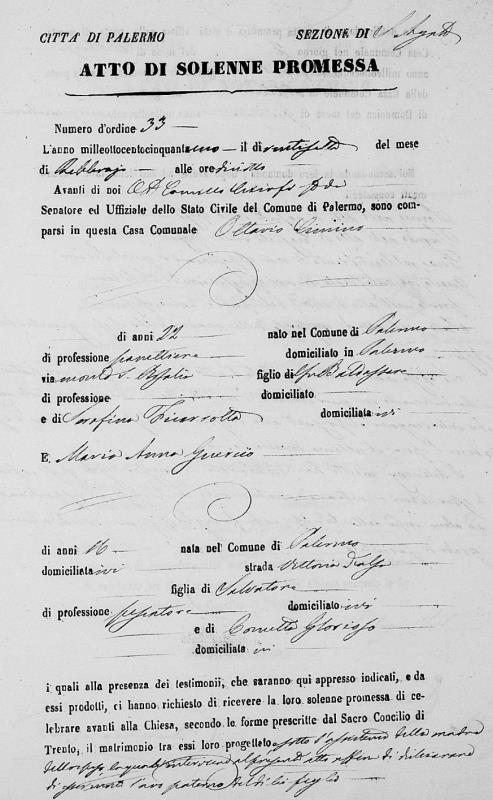 CITTÀ DI PALERMO SEZIONE DI
ATTO DI SOLENNE PROMESSA
Numero d'ordine 33
L'anno milleottocentocinquantauno il dì ventisette del mese
di Febbrajo alle ore diciotto
Avanti di noi
Senatore ed Uffiziale dello Stato Civile del Comune di Palermo, sono com-
parsi in questa Casa Comunale Ottavio Cimino
di anni 22 nato nel Comune di Palermo
di professione panettiere domiciliato in Palermo
via monte S. Rosalia figlio di Baldassare
di professione domiciliato
e di Serafina Ficarrotta domiciliata ivi
E Maria Anna Guercio
di anni 16 nata nel Comune di Palermo
domiciliata ivi strada Vittoria
figlia di Salvatore
di professione pescatore domiciliato ivi
e di Glorioso
domiciliata ivi
i quali alla presenza dei testimonii, che saranno qui appresso indicati, e da
essi prodotti, ci hanno richiesto di ricevere la loro solenne promessa di ce-
lebrare avanti alla Chiesa, secondo le forme prescritte dal Sacro Concilio di
Trento, il matrimonio tra essi loro progettato sotto l'assistenza della madre
dello sposo la quale interviene al presente atto
l'avo paterno figlio